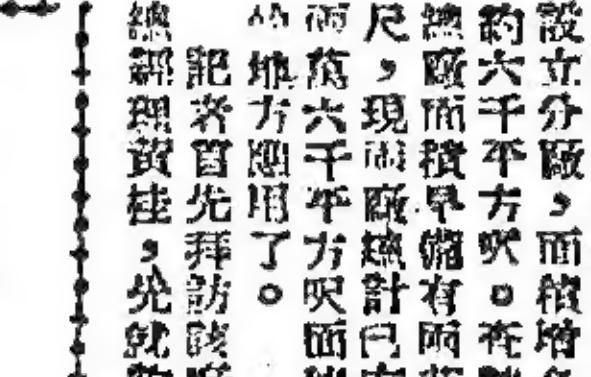 設立分廠，面積增
約六千平方呎。在
總廠面積早僅有兩
尺，現兩廠總計已
兩萬六千平方呎面
的地方應用了。
記者首先拜訪該
總經理黃桂，先就